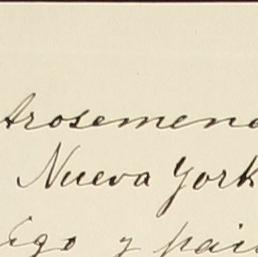 Arosemena
Nueva York
igo y pais